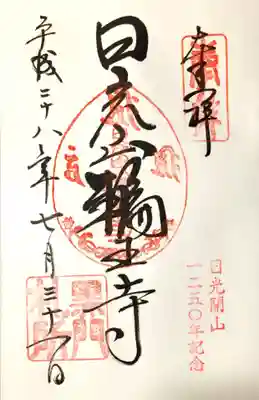 奉拝
日光山輪王寺
平成二十八年七月三十一日
日光開山
一二五〇年記念